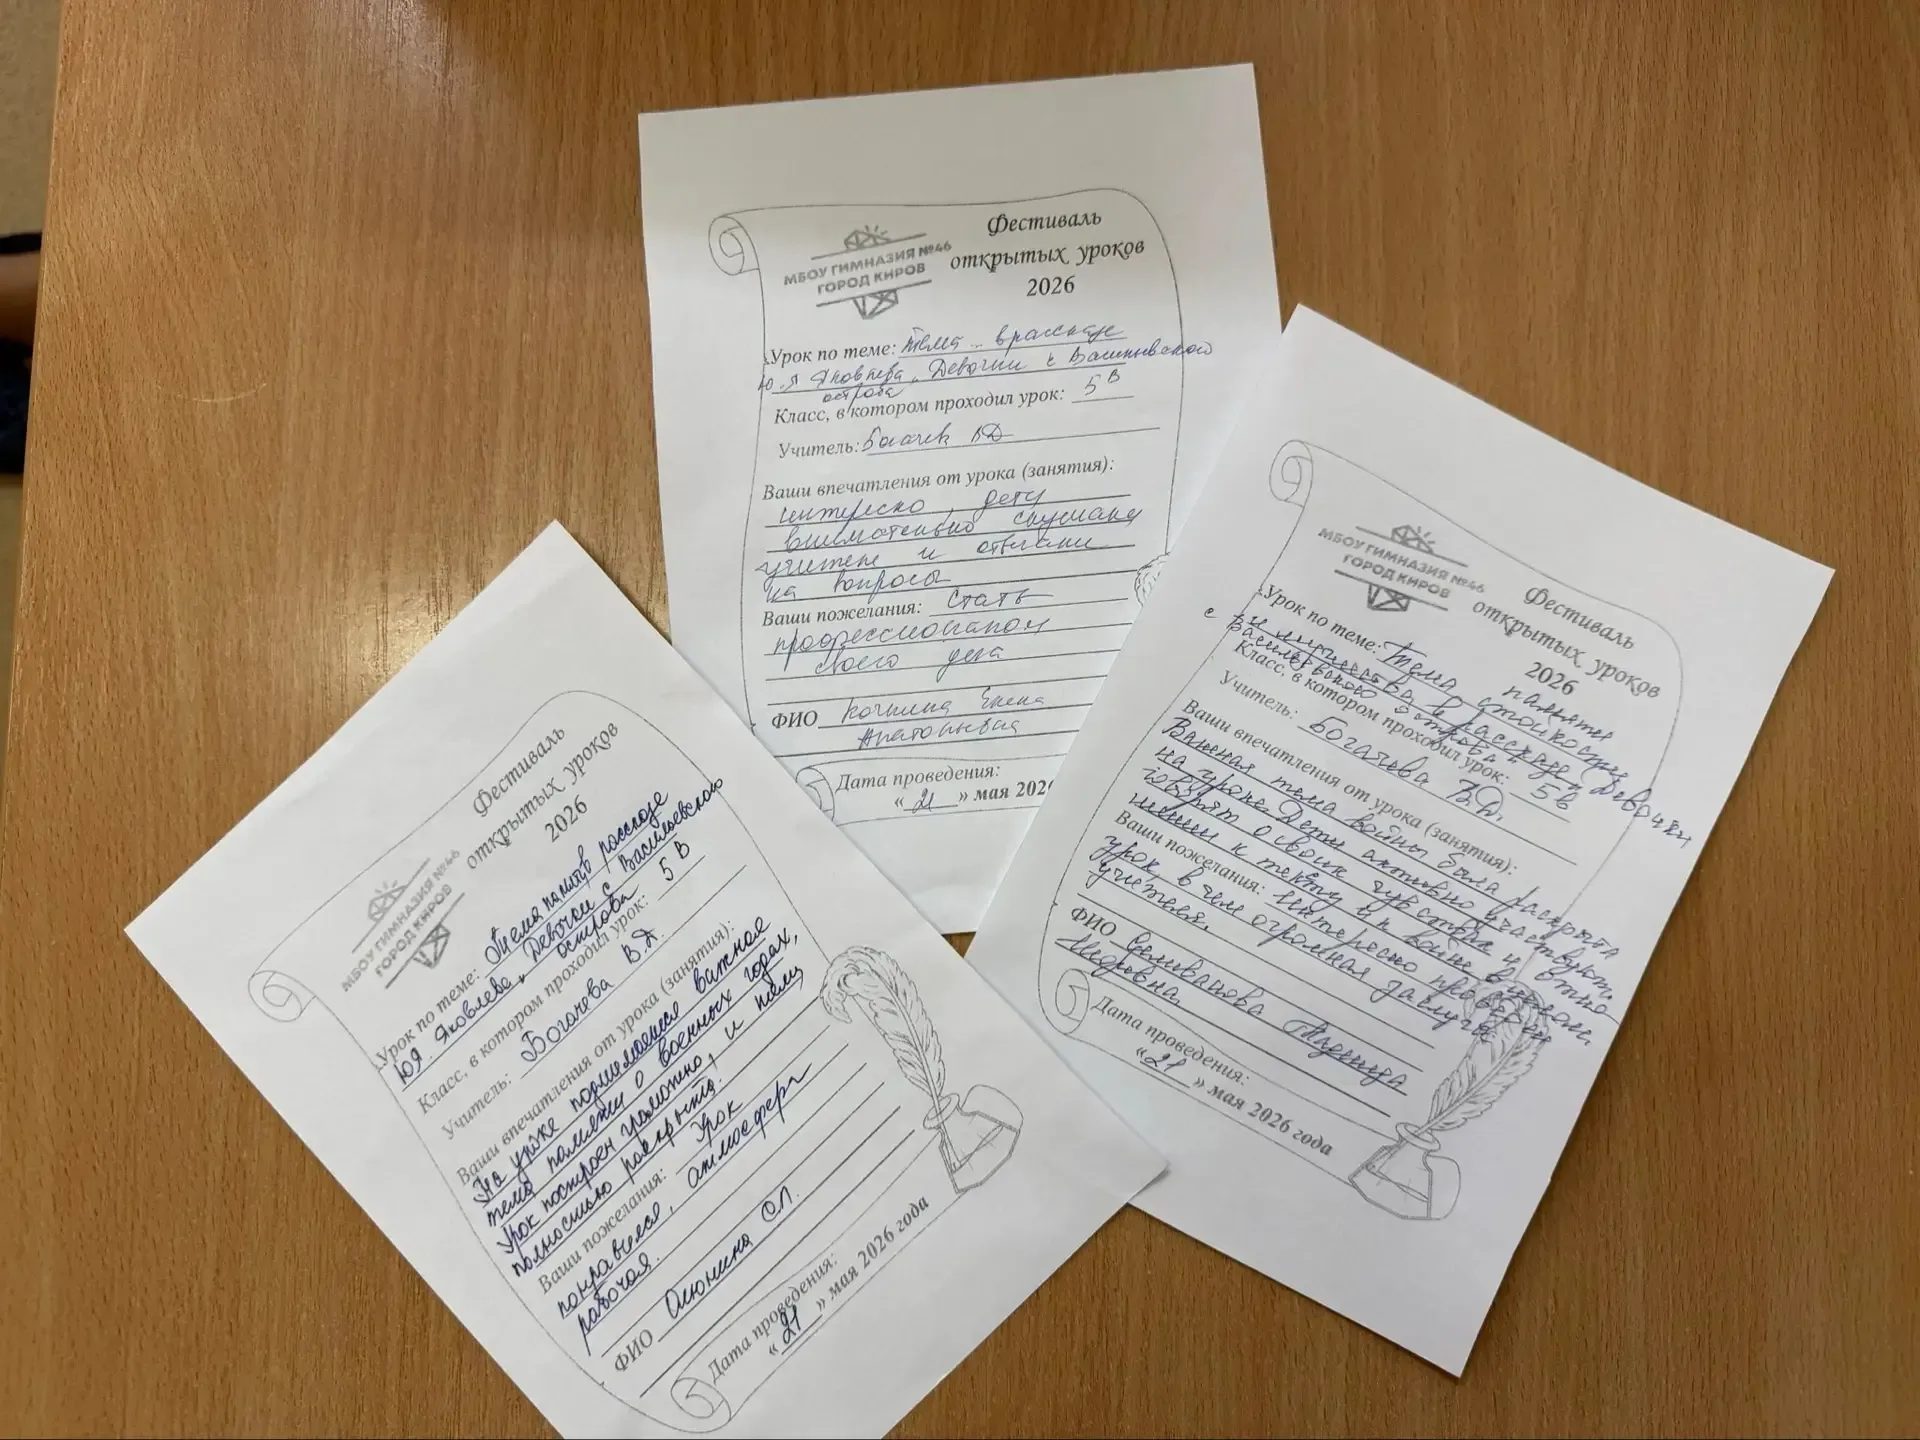 МБОУ ГИМНАЗИЯ №46
ГОРОД КИРОВ
Фестиваль
открытых уроков
2026
Урок по теме: Тема в рассказе
Ю.Я Яковлева „Девочки с
острова
Класс, в котором проходил урок: 5В
Учитель: ВД
Ваши впечатления от урока (занятия):
интересно, дети
внимательно слушали
учителя и отвечали
на вопросы
Ваши пожелания: стать
профессионалом
своего дела
ФИО Елена
Анатольевна
Дата проведения:
« 21 » мая
МБОУ ГИМНАЗИЯ №46
ГОРОД КИРОВ
Фестиваль
открытых уроков
2026
Урок по теме: Тема памяти
стойкости
и мужества в рассказе „Девочки
с Васильевского острова"
Класс, в котором проходил урок: 5в
Учитель: Богачева В.Д.
Ваши впечатления от урока (занятия):
Важная тема войны была раскрыта
на уроке. Дети активно участвуют,
говорят о своих чувствах и отно-
шении к тексту и к войне в целом.
Ваши пожелания: Интересно проведен
урок, в чем огромная заслуга
учителя.
ФИО Селиванова Надежда
Дата проведения:
« 21 » мая 2026 года
МБОУ ГИМНАЗИЯ №46
ГОРОД КИРОВ
Фестиваль
открытых уроков
2026
Урок по теме: Тема памяти в рассказе
Ю.Я. Яковлева „Девочки с Васильевского
острова
Класс, в котором проходил урок: 5 В
Учитель: Богачева В.Д.
Ваши впечатления от урока (занятия):
На уроке поднимается важная
тема памяти о военных годах,
Урок построен грамотно, и тема
полностью раскрыта.
Ваши пожелания: Урок
понравился, атмосфера
рабочая.
ФИО О.Л.
Дата проведения:
« 21 » мая 2026 года